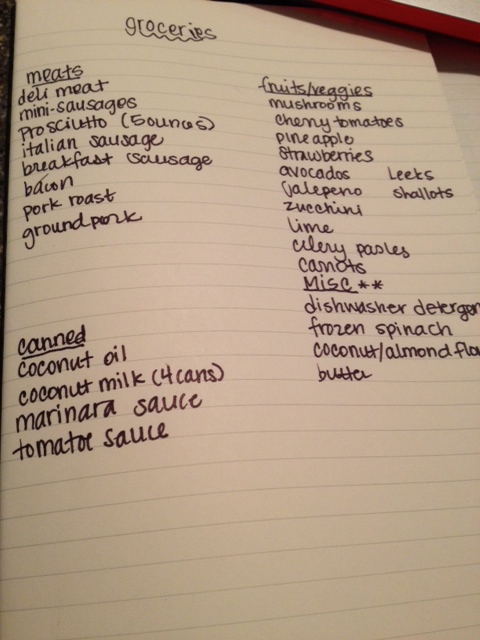 groceries
meats
deli meat
mini-sausages
prosciutto (5ounces)
italian sausage
breakfast sausage
bacon
pork roast
ground pork
fruits/veggies
mushrooms
cherry tomatoes
pineapple
strawberries
avocados leeks
jalepeno shallots
zucchini
lime
celery
carrots
Misc **
dishwasher detergen
frozen spinach
coconut/almond flo
butter
canned
coconut oil
coconut milk (4 cans)
marinara sauce
tomatoe sauce